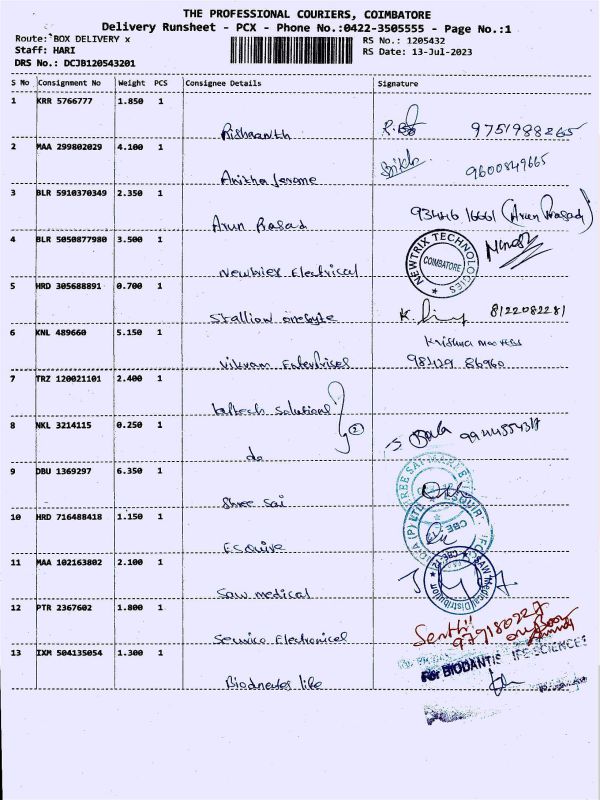 THE PROFESSIONAL COURIERS, COIMBATORE
Delivery Runsheet - PCX - Phone No.:0422-3505555 - Page No.:1
Route: BOX DELIVERY x
RS No.: 1205432
Staff: HARI
RS Date: 13-Jul-2023
DRS No.: DCJB120543201
S No Consignment No Weight PCS Consignee Details Signature
1 KRR 5766777 1.850 1
Rishaanth 9751988265
2 MAA 299802029 4.100 1
Anitha Jerome 9600849665
3 BLR 5910370349 2.350 1
Arun Prasad 934416 16661 (Arun Prasad)
4 BLR 5050877980 3.500 1
Electrical
NEWTRIX TECHNOLOGIES
COIMBATORE
5 HRD 305688891 0.700 1
Stallion onebyte K. 8122082281
6 KNL 489660 5.150 1
Krishna
Vikram Enterprises 98429 86960
7 TRZ 120021101 2.400 1
Solutions
8 NKL 3214115 0.250 1
do 2
Bala
9 DBU 1369297 6.350 1
Shree Sai
10 HRD 716488418 1.150 1
Esquire
11 MAA 102163802 2.100 1
Saw medical
SAW Medical Distribution
12 PTR 2367602 1.800 1
Service Electronical
Senthil
13 IXM 504135054 1.300 1
For BIODANTIS LIFE SCIENCES
life